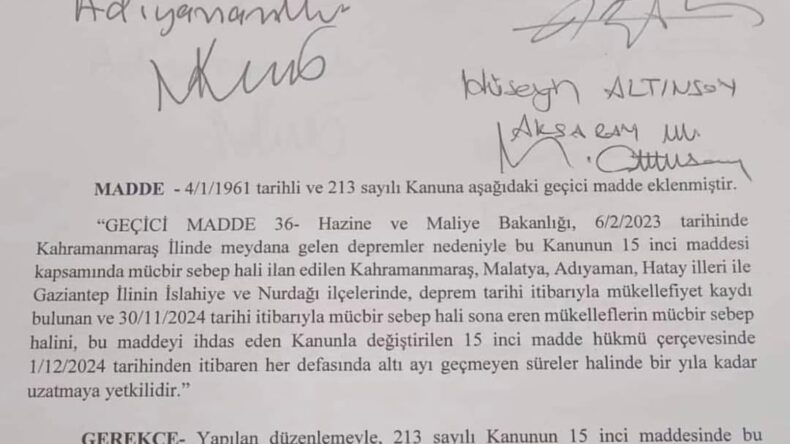 Adıyaman
Hüseyin ALTINSOY
AKSARAY M.
MADDE - 4/1/1961 tarihli ve 213 sayılı Kanuna aşağıdaki geçici madde eklenmiştir.
“GEÇİCİ MADDE 36- Hazine ve Maliye Bakanlığı, 6/2/2023 tarihinde
Kahramanmaraş İlinde meydana gelen depremler nedeniyle bu Kanunun 15 inci maddesi
kapsamında mücbir sebep hali ilan edilen Kahramanmaraş, Malatya, Adıyaman, Hatay illeri ile
Gaziantep İlinin İslahiye ve Nurdağı ilçelerinde, deprem tarihi itibarıyla mükellefiyet kaydı
bulunan ve 30/11/2024 tarihi itibarıyla mücbir sebep hali sona eren mükelleflerin mücbir sebep
halini, bu maddeyi ihdas eden Kanunla değiştirilen 15 inci madde hükmü çerçevesinde
1/12/2024 tarihinden itibaren her defasında altı ayı geçmeyen süreler halinde bir yıla kadar
uzatmaya yetkilidir.”
GEREKÇE- Yapılan düzenlemeyle, 213 sayılı Kanunun 15 inci maddesinde bu